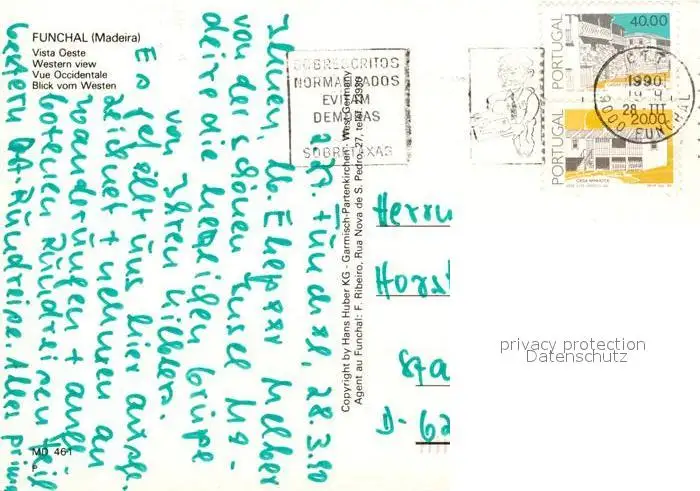 FUNCHAL (Madeira)
Vista Oeste
Western view
Vue Occidentale
Blick vom Westen
SOBRESCRITOS
NORMALIZADOS
EVITAM
DEMORAS
E
SOBRETAXAS
PORTUGAL
40.00
PORTUGAL
20.00
CASA MINHOTA
CTT
1990
28-III
9000 FUNCHAL
Copyright by Hans Huber KG - Garmisch-Partenkirchen - West Germany
Agent au Funchal: F. Ribeiro, Rua Nova de S. Pedro, 27, telef. 23930
Funchal, 28.3.90
Ihnen, lb. Ehepaar
von der schönen Insel Ma-
deira die herzlichen Grüße
von Ihren
Es gefällt uns hier ausge-
zeichnet + nehmen an
Wanderungen + auch
Botanischen teil
gestern Alles prima
Herrn
Horst
Sta
D-62
MD 461
P
privacy protection
Datenschutz